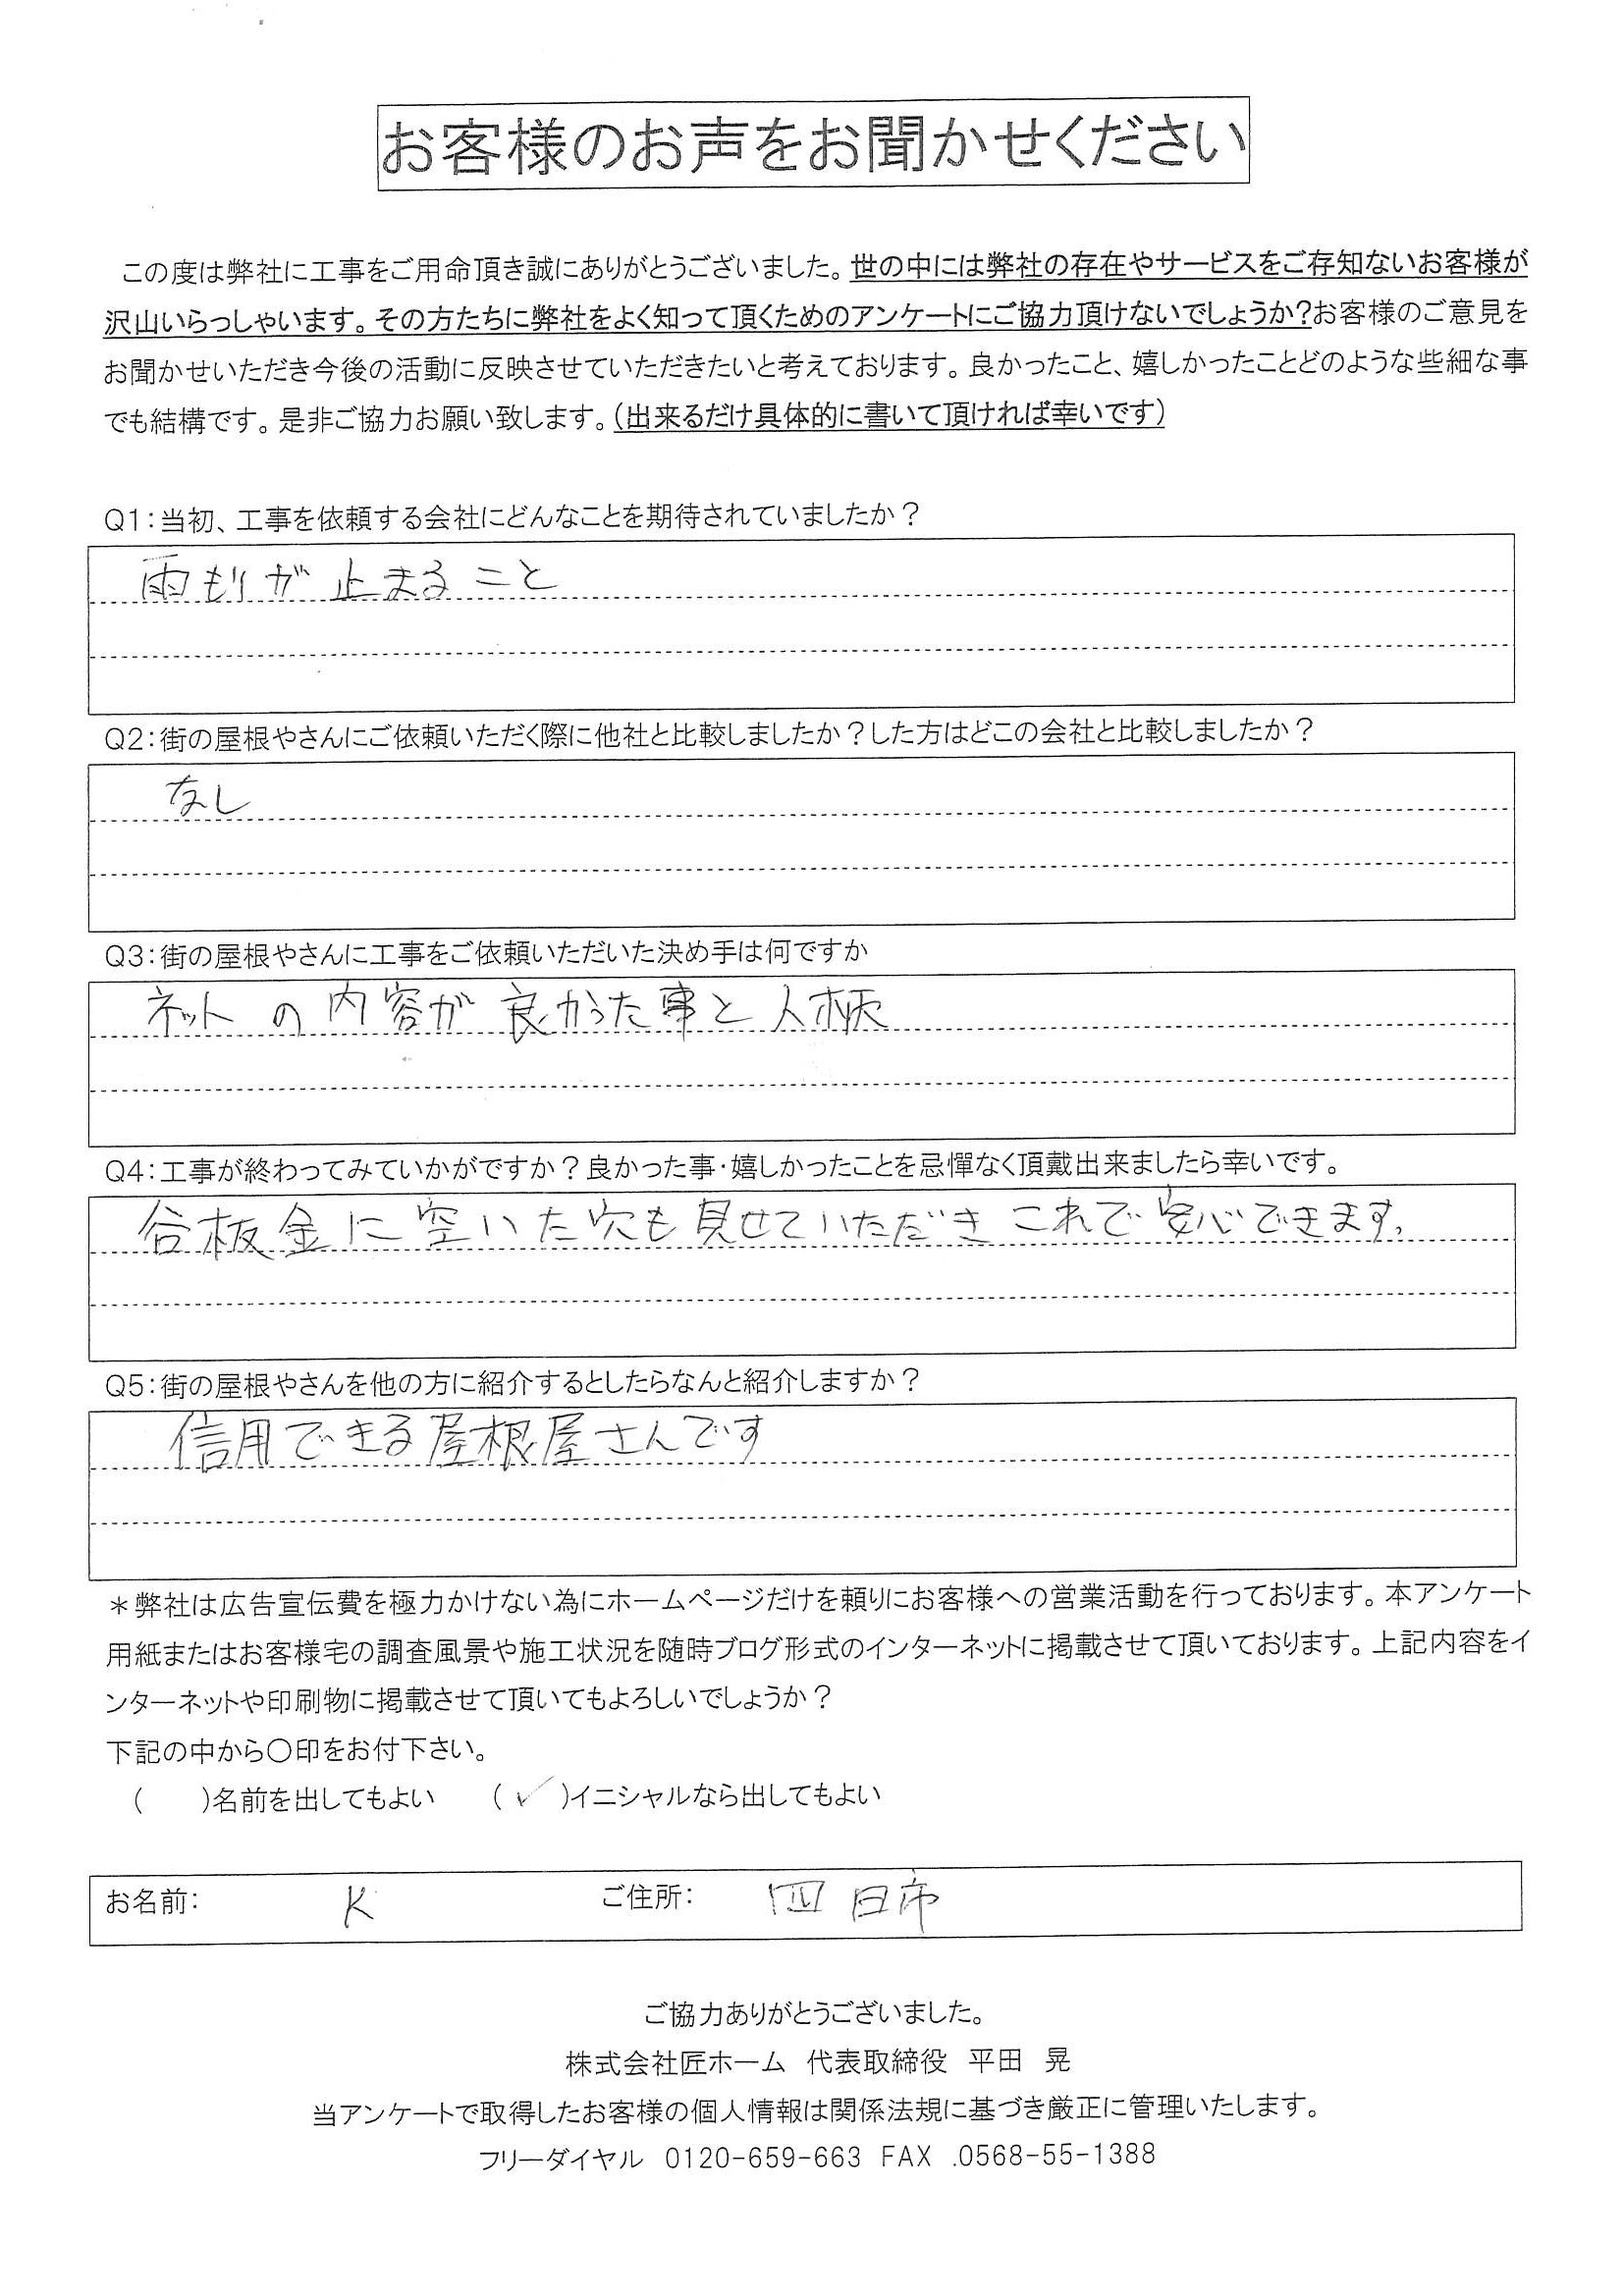 お客様のお声をお聞かせください
この度は弊社に工事をご用命頂き誠にありがとうございました。世の中には弊社の存在やサービスをご存知ないお客様が
沢山いらっしゃいます。その方たちに弊社をよく知って頂くためのアンケートにご協力頂けないでしょうか?お客様のご意見を
お聞かせいただき今後の活動に反映させていただきたいと考えております。良かったこと、嬉しかったことどのような些細な事
でも結構です。是非ご協力お願い致します。(出来るだけ具体的に書いて頂ければ幸いです)
Q1:当初、工事を依頼する会社にどんなことを期待されていましたか?
雨もりが止まること
Q2:街の屋根やさんにご依頼いただく際に他社と比較しましたか?した方はどこの会社と比較しましたか?
なし
Q3:街の屋根やさんに工事をご依頼いただいた決め手は何ですか
ネットの内容が良かった事と人柄
Q4:工事が終わってみていかがですか?良かった事・嬉しかったことを忌憚なく頂戴出来ましたら幸いです。
谷板金に空いた穴も見せていただき これで安心できます。
Q5:街の屋根やさんを他の方に紹介するとしたらなんと紹介しますか?
信用できる屋根屋さんです
*弊社は広告宣伝費を極力かけない為にホームページだけを頼りにお客様への営業活動を行っております。本アンケート
用紙またはお客様宅の調査風景や施工状況を随時ブログ形式のインターネットに掲載させて頂いております。上記内容をイ
ンターネットや印刷物に掲載させて頂いてもよろしいでしょうか?
下記の中から○印をお付下さい。
( )名前を出してもよい (✓)イニシャルなら出してもよい
お名前: K ご住所: 四日市
ご協力ありがとうございました。
株式会社匠ホーム 代表取締役 平田 晃
当アンケートで取得したお客様の個人情報は関係法規に基づき厳正に管理いたします。
フリーダイヤル 0120-659-663 FAX .0568-55-1388